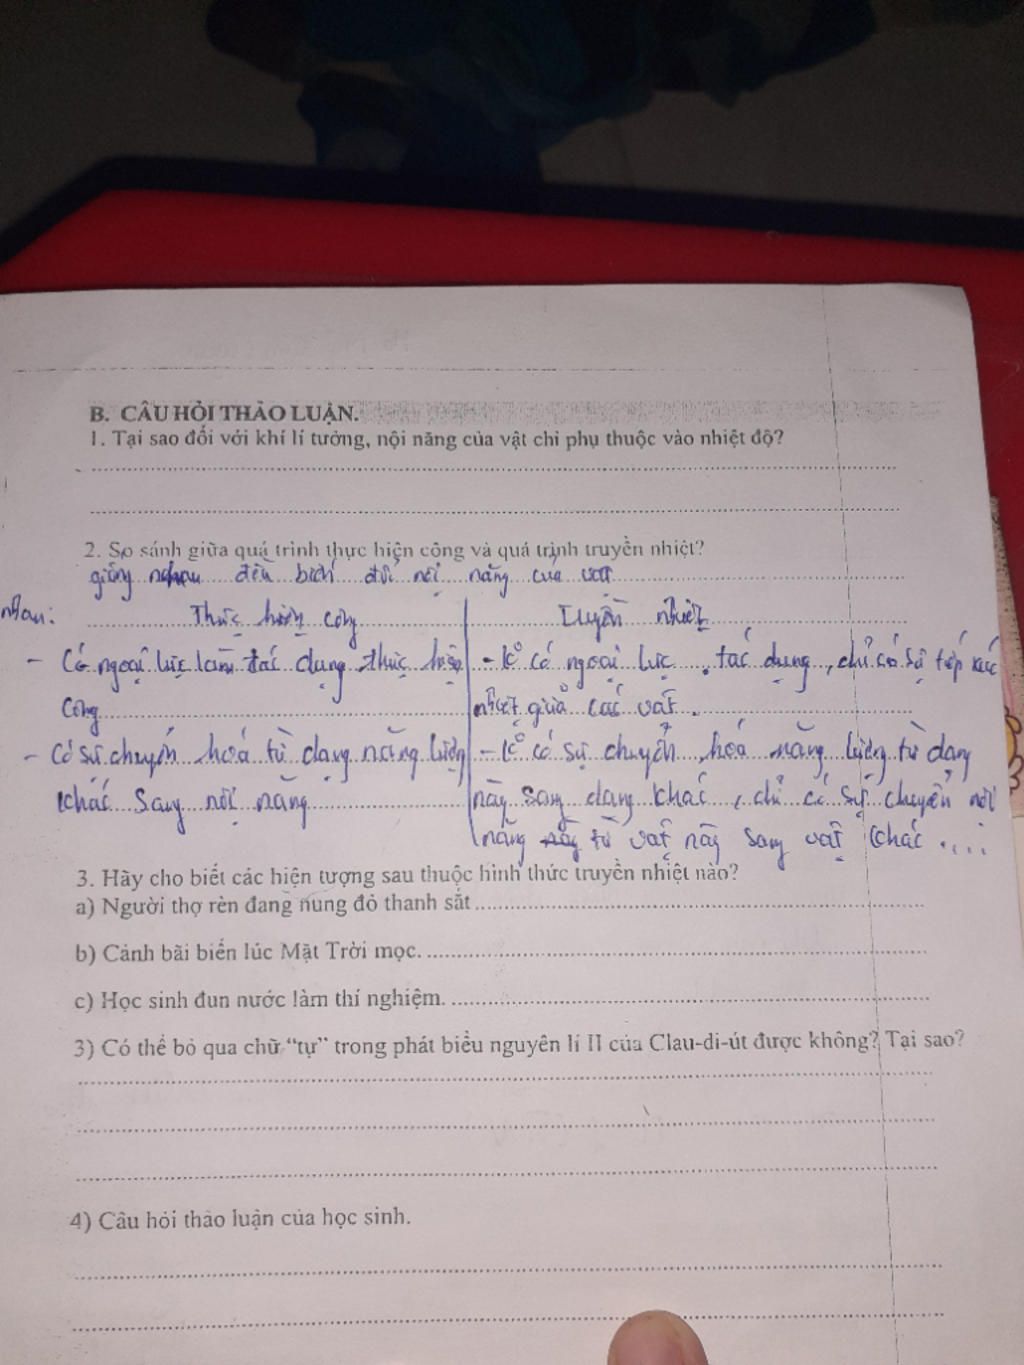 B. CÂU HỎI THẢO LUẬN.
1. Tại sao đối với khí lí tưởng, nội năng của vật chỉ phụ thuộc vào nhiệt độ?
2. So sánh giữa quá trình thực hiện công và quá trình truyền nhiệt?
giống nhau đều biến đổi nội năng của vật
nhau: Thực hiện công Truyền nhiệt
- Có ngoại lực làm tác dụng thực hiện - k° có ngoại lực tác dụng, chỉ có sự tiếp xúc
Công nhiệt giữa các vật.
- Có sự chuyển hoá từ dạng năng lượng - k° có sự chuyển hoá năng lượng từ dạng
khác sang nội năng này sang dạng khác, chỉ có sự chuyển nội
năng từ vật này sang vật khác....
3. Hãy cho biết các hiện tượng sau thuộc hình thức truyền nhiệt nào?
a) Người thợ rèn đang nung đỏ thanh sắt
b) Cảnh bãi biển lúc Mặt Trời mọc.
c) Học sinh đun nước làm thí nghiệm.
3) Có thể bỏ qua chữ “tự” trong phát biểu nguyên lí II của Clau-di-út được không? Tại sao?
4) Câu hỏi thảo luận của học sinh.